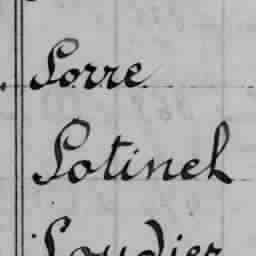 Sorre
Sotinel
Soudier